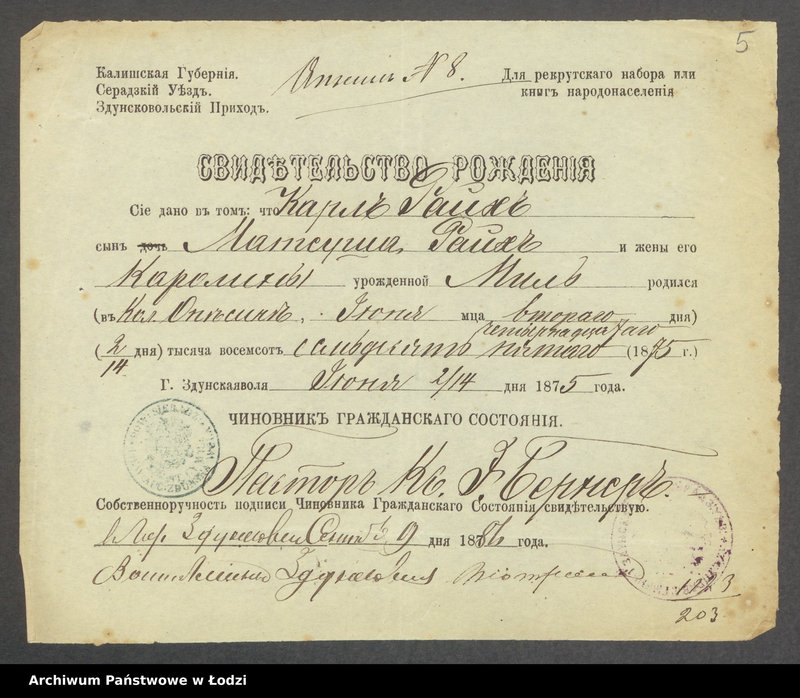 5
Калишская Губернія.
Серадзкій Уѣздъ.
Здунсковольскій Приходъ.
№ 8.
Для рекрутскаго набора или
книгъ народонаселенія
СВИДѢТЕЛЬСТВО РОЖДЕНІЯ
Сіе дано въ томъ: что Карлъ Райхъ
сынъ дочь Матеуша Райхъ и жены его
Каролины урожденной Миль родился
(въ Кол. Опѣсинѣ, Іюня мца втораго дня)
четырнадцатаго
(2/14 дня) тысяча восемсотъ семьдесятъ пятаго (1875 г.)
Г. Здунскаяволя Іюня 2/14 дня 1875 года.
ЧИНОВНИКЪ ГРАЖДАНСКАГО СОСТОЯНІЯ.
Пасторъ Кс. Э. Бернеръ.
Собственноручность подписи Чиновника Гражданскаго Состоянія свидѣтельствую.
9 дня 1886 года.
203
Archiwum Państwowe w Łodzi